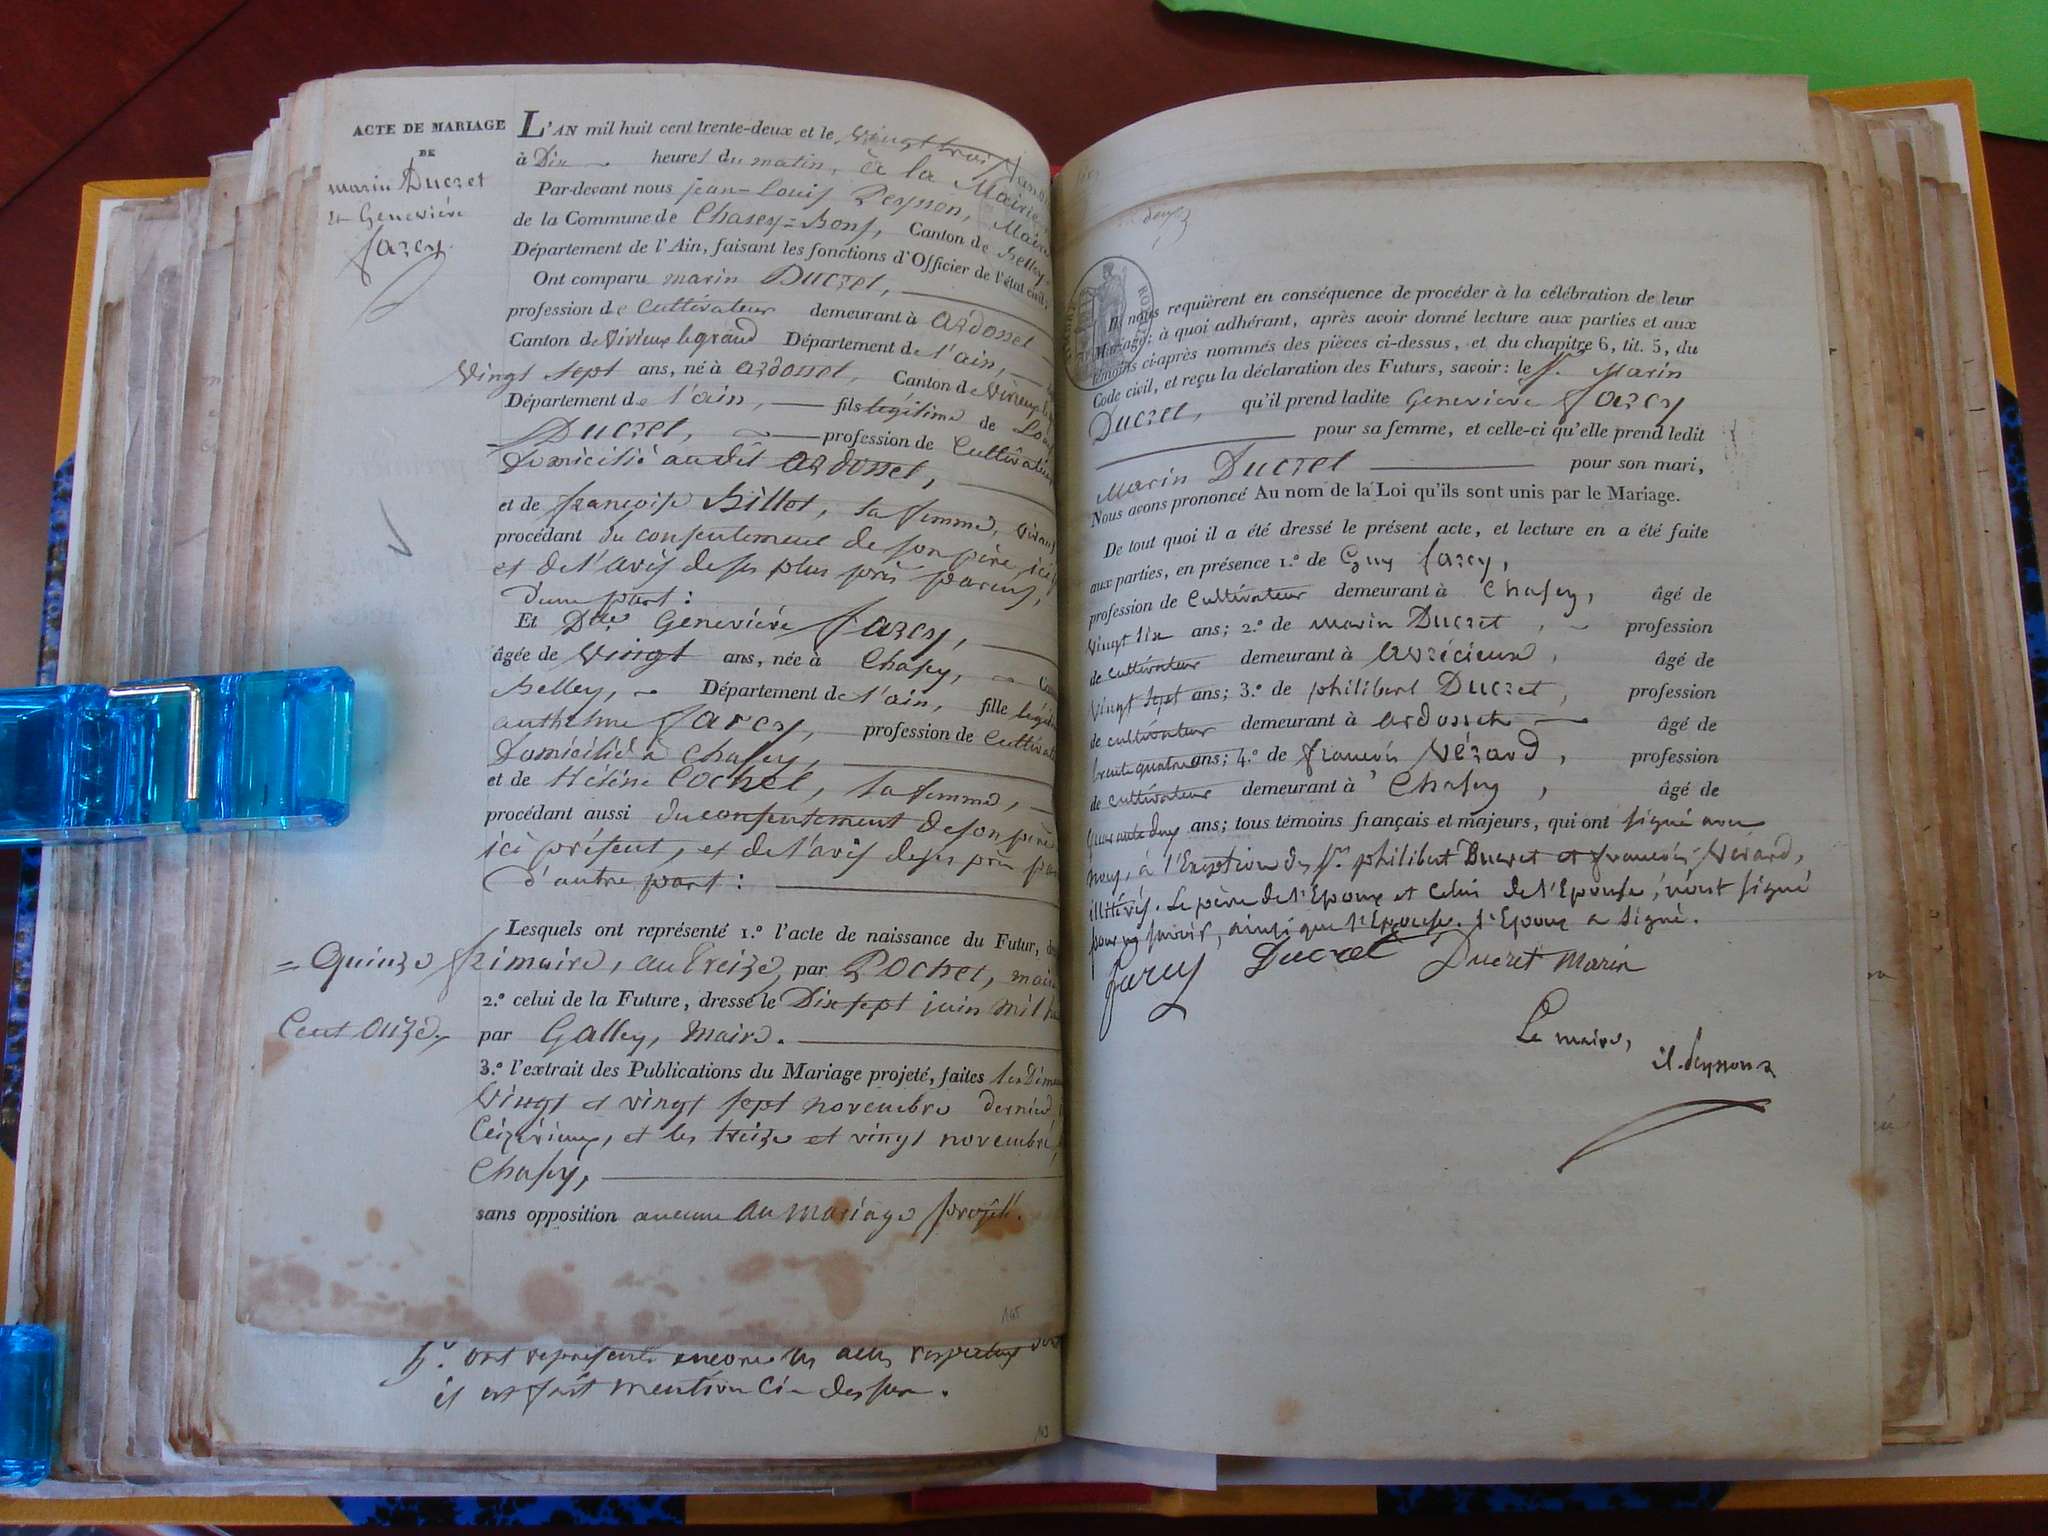 ACTE DE MARIAGE
DE
marin Ducret
et Geneviéve
farcy.
L'AN mil huit cent trente-deux et le vingt trois Janvi
à Dix heures du matin, à la Mairie
Par-devant nous jean-Louis Peysson, Maire
de la Commune de Chasey-Bons, Canton de Belley
Département de l'Ain, faisant les fonctions d'Officier de l'état civil,
Ont comparu marin Ducret,
profession de Cultivateur demeurant à Ardosset
Canton de Virieux legrand Département de l'ain,
vingt sept ans, né à Ardosset, Canton de Virieux
Département de l'ain, fils légitime de Louis
Ducret, profession de Cultivateur
Domicilié audit Ardosset,
et de françoise Billot, sa femme, vivant
procédant du consentement de son père, ici
et de l'avis de ses plus près parens,
d'une part :
Et Dlle Geneviéve farcy,
âgée de vingt ans, née à Chasey,
Belley, Département de l'ain, fille légitim
anthelme farcy, profession de Cultivat
Domicilié à Chasey,
et de Héléne Cochet, sa femme,
procédant aussi du consentement de son père
ici présent, et de l'avis de ses près pa
d'autre part :
Lesquels ont représenté 1.º l'acte de naissance du Futur,
= Quinze frimaire, an treize, par Pochet, maire
2.º celui de la Future, dressé le Dix sept juin mil hu
Cent onze, par Galley, Maire.
3.º l'extrait des Publications du Mariage projeté, faites les Diman
vingt et vingt sept novembre dernier
Ceizérieux, et les treize et vingt novembre,
Chasey,
sans opposition aucune au mariage projeté.
145
4.º ont représenté encore les actes respectueux dont
il est fait mention ci-dessus.
143
Ils nous requièrent en conséquence de procéder à la célébration de leur
Mariage; à quoi adhérant, après avoir donné lecture aux parties et aux
témoins ci-après nommés des pièces ci-dessus, et du chapitre 6, tit. 5, du
Code civil, et reçu la déclaration des Futurs, savoir : le Sr. Marin
Ducret, qu'il prend ladite Geneviéve farcy
pour sa femme, et celle-ci qu'elle prend ledit
Marin Ducret pour son mari,
Nous avons prononcé Au nom de la Loi qu'ils sont unis par le Mariage.
De tout quoi il a été dressé le présent acte, et lecture en a été faite
aux parties, en présence 1.º de Guy farcy,
profession de Cultivateur demeurant à Chasey, âgé de
vingt six ans; 2.º de marin Ducret, profession
de cultivateur demeurant à avrécieux, âgé de
vingt sept ans; 3.º de philibert Ducret, profession
de cultivateur demeurant à ardosset âgé de
trente quatre ans; 4.º de françois Vérard, profession
de cultivateur demeurant à Chasey, âgé de
quarante deux ans; tous témoins français et majeurs, qui ont signé avec
nous, à l'Exception des Srs philibert Ducret et françois Verard,
illitérés. Le père de l'Epoux et celui de l'Epouse, n'ont signé
pour ne savoir, ainsi que l'Epouse. l'Epoux a signé.
farcy Ducret Ducret Marin
Le maire,